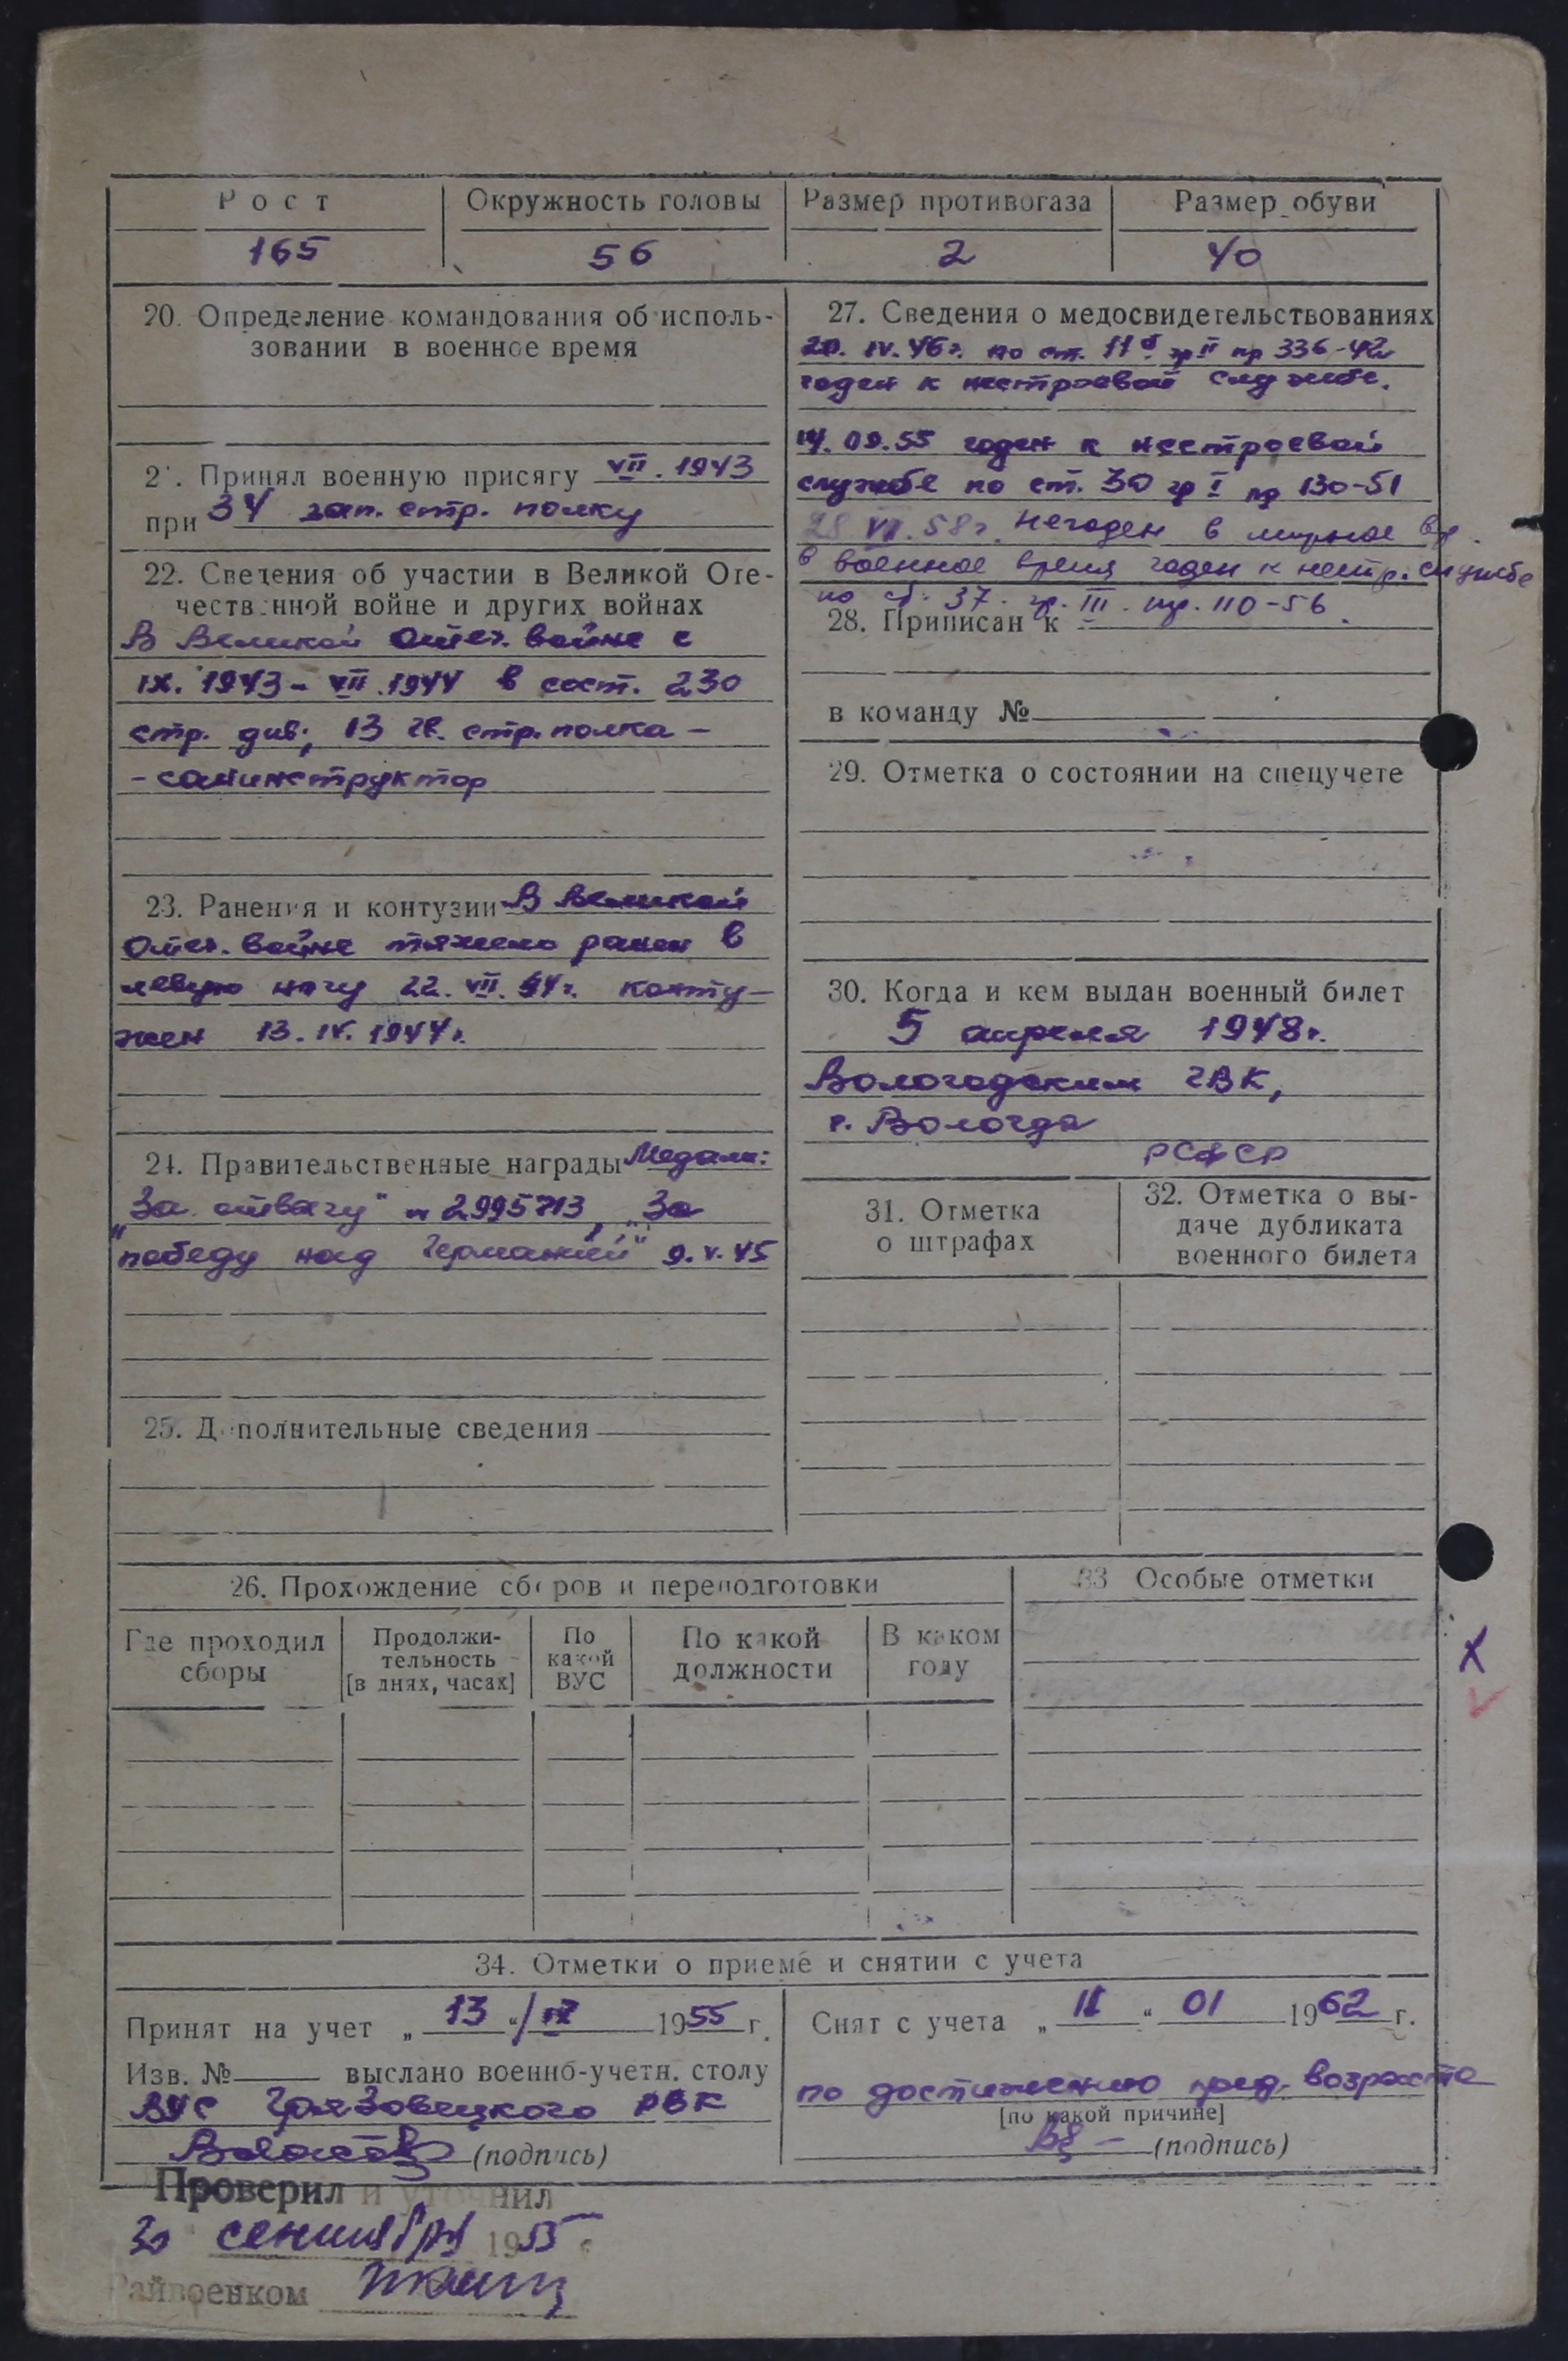 Рост
165
Окружность головы
56
Размер противогаза
2
Размер обуви
40
20. Определение командования об исполь-
зовании в военное время
21. Принял военную присягу VII. 1943
при 34 зап. стр. полку
22. Сведения об участии в Великой Оте-
чественной войне и других войнах
В Великой Отеч. войне с
IX. 1943 - VII. 1944 в сост. 230
стр. див., 13 гв. стр. полка -
- санинструктор
23. Ранения и контузии В Великой
Отеч. войне тяжело ранен в
левую ногу 22. VII. 44г. конту-
жен 13. IV. 1944г.
24. Правительственные награды Медали:
„За отвагу" № 2995713, „За
победу над Германией" 9.V.45
25. Дополнительные сведения
27. Сведения о медосвидетельствованиях
20. IV. 46г. по ст. 11б гр II пр 336-42г
годен к нестроевой службе.
14. 09. 55 годен к нестроевой
службе по ст. 30 гр I пр 130-51
28 VI. 58г. Негоден в мирное вр.
в военное время годен к нестр. службе
по ст. 37. гр. III. пр. 110-56.
28. Приписан к
в команду №
29. Отметка о состоянии на спецучете
30. Когда и кем выдан военный билет
5 апреля 1948г.
Вологодским ГВК,
г. Вологда
РСФСР
31. Отметка
о штрафах
32. Отметка о вы-
даче дубликата
военного билета
26. Прохождение сборов и переподготовки
Где проходил
сборы
Продолжи-
тельность
[в днях, часах]
По
какой
ВУС
По какой
должности
В каком
году
33 Особые отметки
34. Отметки о приеме и снятии с учета
Принят на учет „ 13 “ / IX 1955 г.
Изв. № выслано военно-учетн. столу
ВУС Грязовецкого РВК
(подпись)
Снят с учета „ 11 “ 01 1962 г.
по достижению пред. возраста
[по какой причине]
(подпись)
Проверил и уточнил
30 сентября 1955 г.
Райвоенком